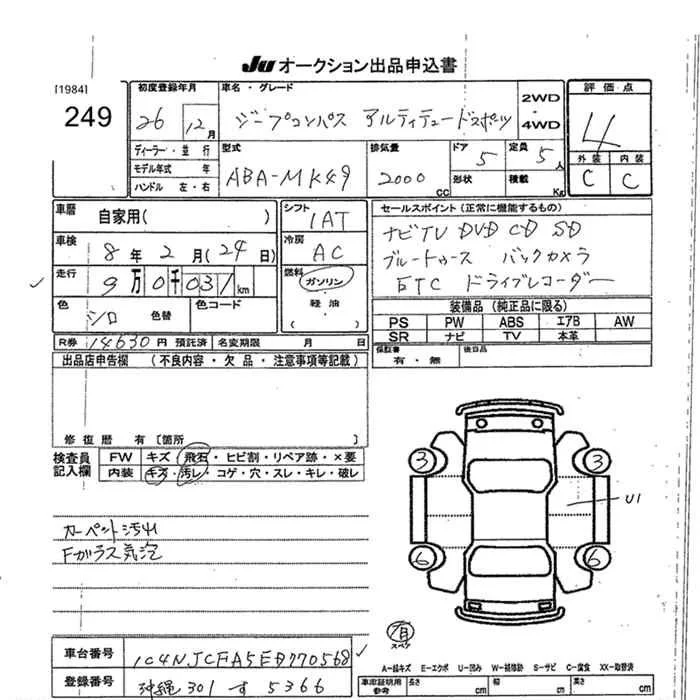 JU オークション出品申込書
[1984]
249
初度登録年月
26 12月
車名・グレード
ジープコンパス アルティテュードスポーツ
2WD
・4WD
評価点
4
外装 内装
C C
ディーラー・並行
モデル年式 年
ハンドル 左・右
型式
ABA-MK49
排気量
2000 cc
ドア
5
形状
定員
5人
積載 Kg
車歴
自家用( )
シフト
IAT
車検
8年2月(24日)
冷房
AC
走行
9万0千031km
燃料
ガソリン
・軽油・
( )
色
シロ 色替
色コード
R券 14630円 預託済 名変期限 月 日
セールスポイント (正常に機能するもの)
ナビTV DVD CD SD
ブルートゥース バックカメラ
ETC ドライブレコーダー
装備品 (純正品に限る)
PS PW ABS エアB AW
SR ナビ TV 本革
保証書 有・無 後日品
出品店申告欄 (不良内容・欠品・注意事項等記載)
修復歴 有 [箇所 ]
検査員記入欄
FW キズ・飛石・ヒビ割・リペア跡・×要
内装 キズ・汚レ・コゲ・穴・スレ・キレ・破レ
カーペット汚れ
Fガラス気泡
3 3
U1
6 6
スペア
A-線キズ E-エクボ U-凹み W-補修跡 S-サビ C-腐食 XX-取替済
車台番号
1C4NJCFA5ED770568
登録番号
沖縄 301 す 5366
車庫証明用参考
長さ cm
幅 cm
高さ cm